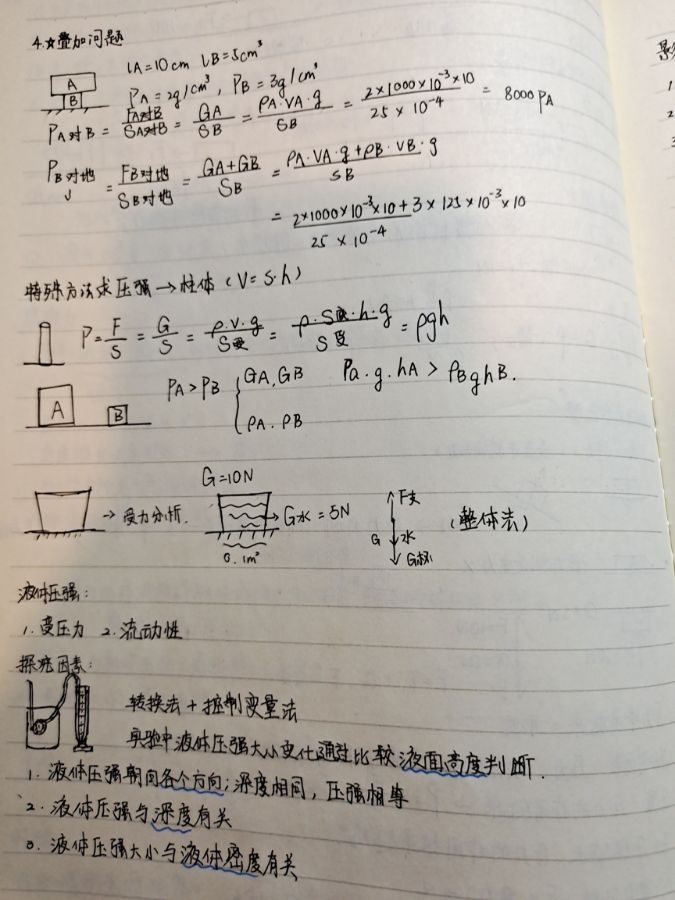 4.☆叠加问题
lA=10cm lB=5cm³
A
B
ρA=2g/cm³, ρB=3g/cm³
PA对B = FA对B/SA对B = GA/SB = ρA·VA·g/SB = 2×1000×10⁻³×10/25×10⁻⁴ = 8000Pa
PB对地 = FB对地/SB对地 = GA+GB/SB = ρA·VA·g+ρB·VB·g/SB
↓
= 2×1000×10⁻³×10+3×125×10⁻³×10/25×10⁻⁴
特殊方法求压强→柱体(V=S·h)
P=F/S=G/S=ρ·V·g/S受=ρ·S受·h·g/S受=ρgh
A B PA>PB { GA,GB ρa·g·hA>ρBghB.
ρA.ρB
G=10N
→受力分析. →G水=5N
0.1m²
F支
G水
G杯
(整体法)
液体压强:
1.受压力 2.流动性
探究因素:
转换法+控制变量法
实验中液体压强大小变化通过比较液面高度判断.
1.液体压强朝向各个方向;深度相同,压强相等
2.液体压强与深度有关
3.液体压强大小与液体密度有关
1.
2
3